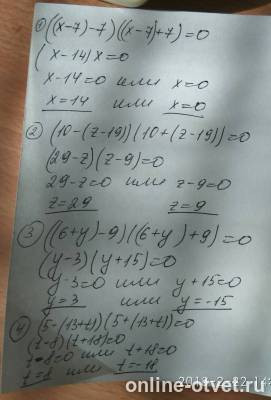 ① ((x-7)-7)((x-7)+7)=0
(x-14)x=0
x-14=0 или x=0
x=14 или x=0
② (10-(z-19))(10+(z-19))=0
(29-z)(z-9)=0
29-z=0 или z-9=0
z=29 z=9
③ ((6+y)-9)((6+y)+9)=0
(y-3)(y+15)=0
y-3=0 или y+15=0
y=3 или y=-15
④ (5-(13+t))(5+(13+t))=0
(t-8)(t+18)=0
t-8=0 или t+18=0
t=8 или t=-18
online-otvet.ru/